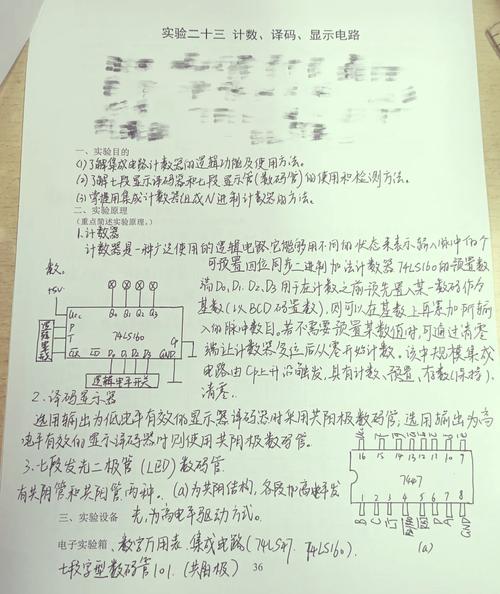 实验二十三 计数、译码、显示电路
一、实验目的
(1)了解集成电路计数器的逻辑功能及使用方法。
(2)了解七段显示译码器和七段显示管(数码管)的使用和检测方法。
(3)掌握用集成计数器组成N进制计数器的方法。
二、实验原理
(重点简述实验原理,)
1.计数器
计数器是一种广泛使用的逻辑电路,它能够用不同的状态来表示输入脉冲的个
数。
可预置四位同步二进制加法计数器74LS160的预置数
端D0、D1、D2、D3用于在计数之前预先置入某一数码作为
基数(以BCD码置数),则可以在基数上再累加所输
入的脉冲数目。若不需要预置某数值时,可通过清零
端让计数器复位后从零开始计数。该中规模集成
电路由Cp上升沿触发,具有计数、预置、存数(保持)、
清零.
+5V
逻辑
Ucc Q0 Q1 Q2 Q3
P
T
74LS160
Cp
D0 D1 D2 D3 GND
逻辑电平开关
2.译码显示器
选用输出为低电平有效的显示器译码器时采用共阳极数码管;选用输出为高
电平有效的显示译码器时则使用共阴极数码管。
3.七段发光二极管(LED)数码管
有共阴管和共阳管,两种。(a)为共阴结构,各段加高电平发
光,为高电平驱动方式。
16 15 14 13 12 11 10 9
7447
1 2 3 4 5 6 7 8
B C D A GND
(a)
三、实验设备
电子实验箱、数字万用表、集成电路(74LS47、74LS160)、
七段字型数码管101、(共阳极)
36